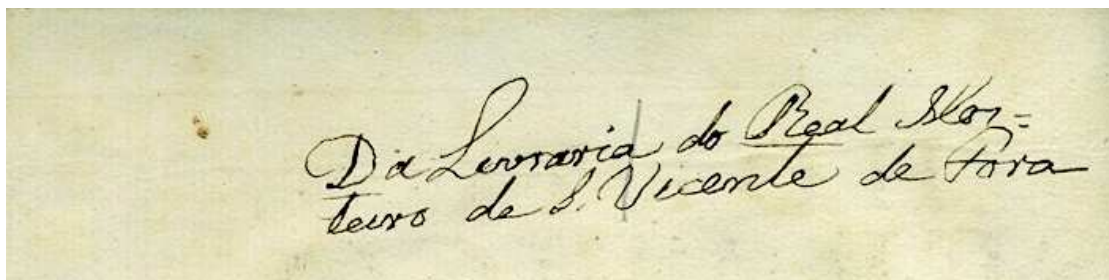 Da Livraria do Real Mos=
teiro de S. Vicente de Fora